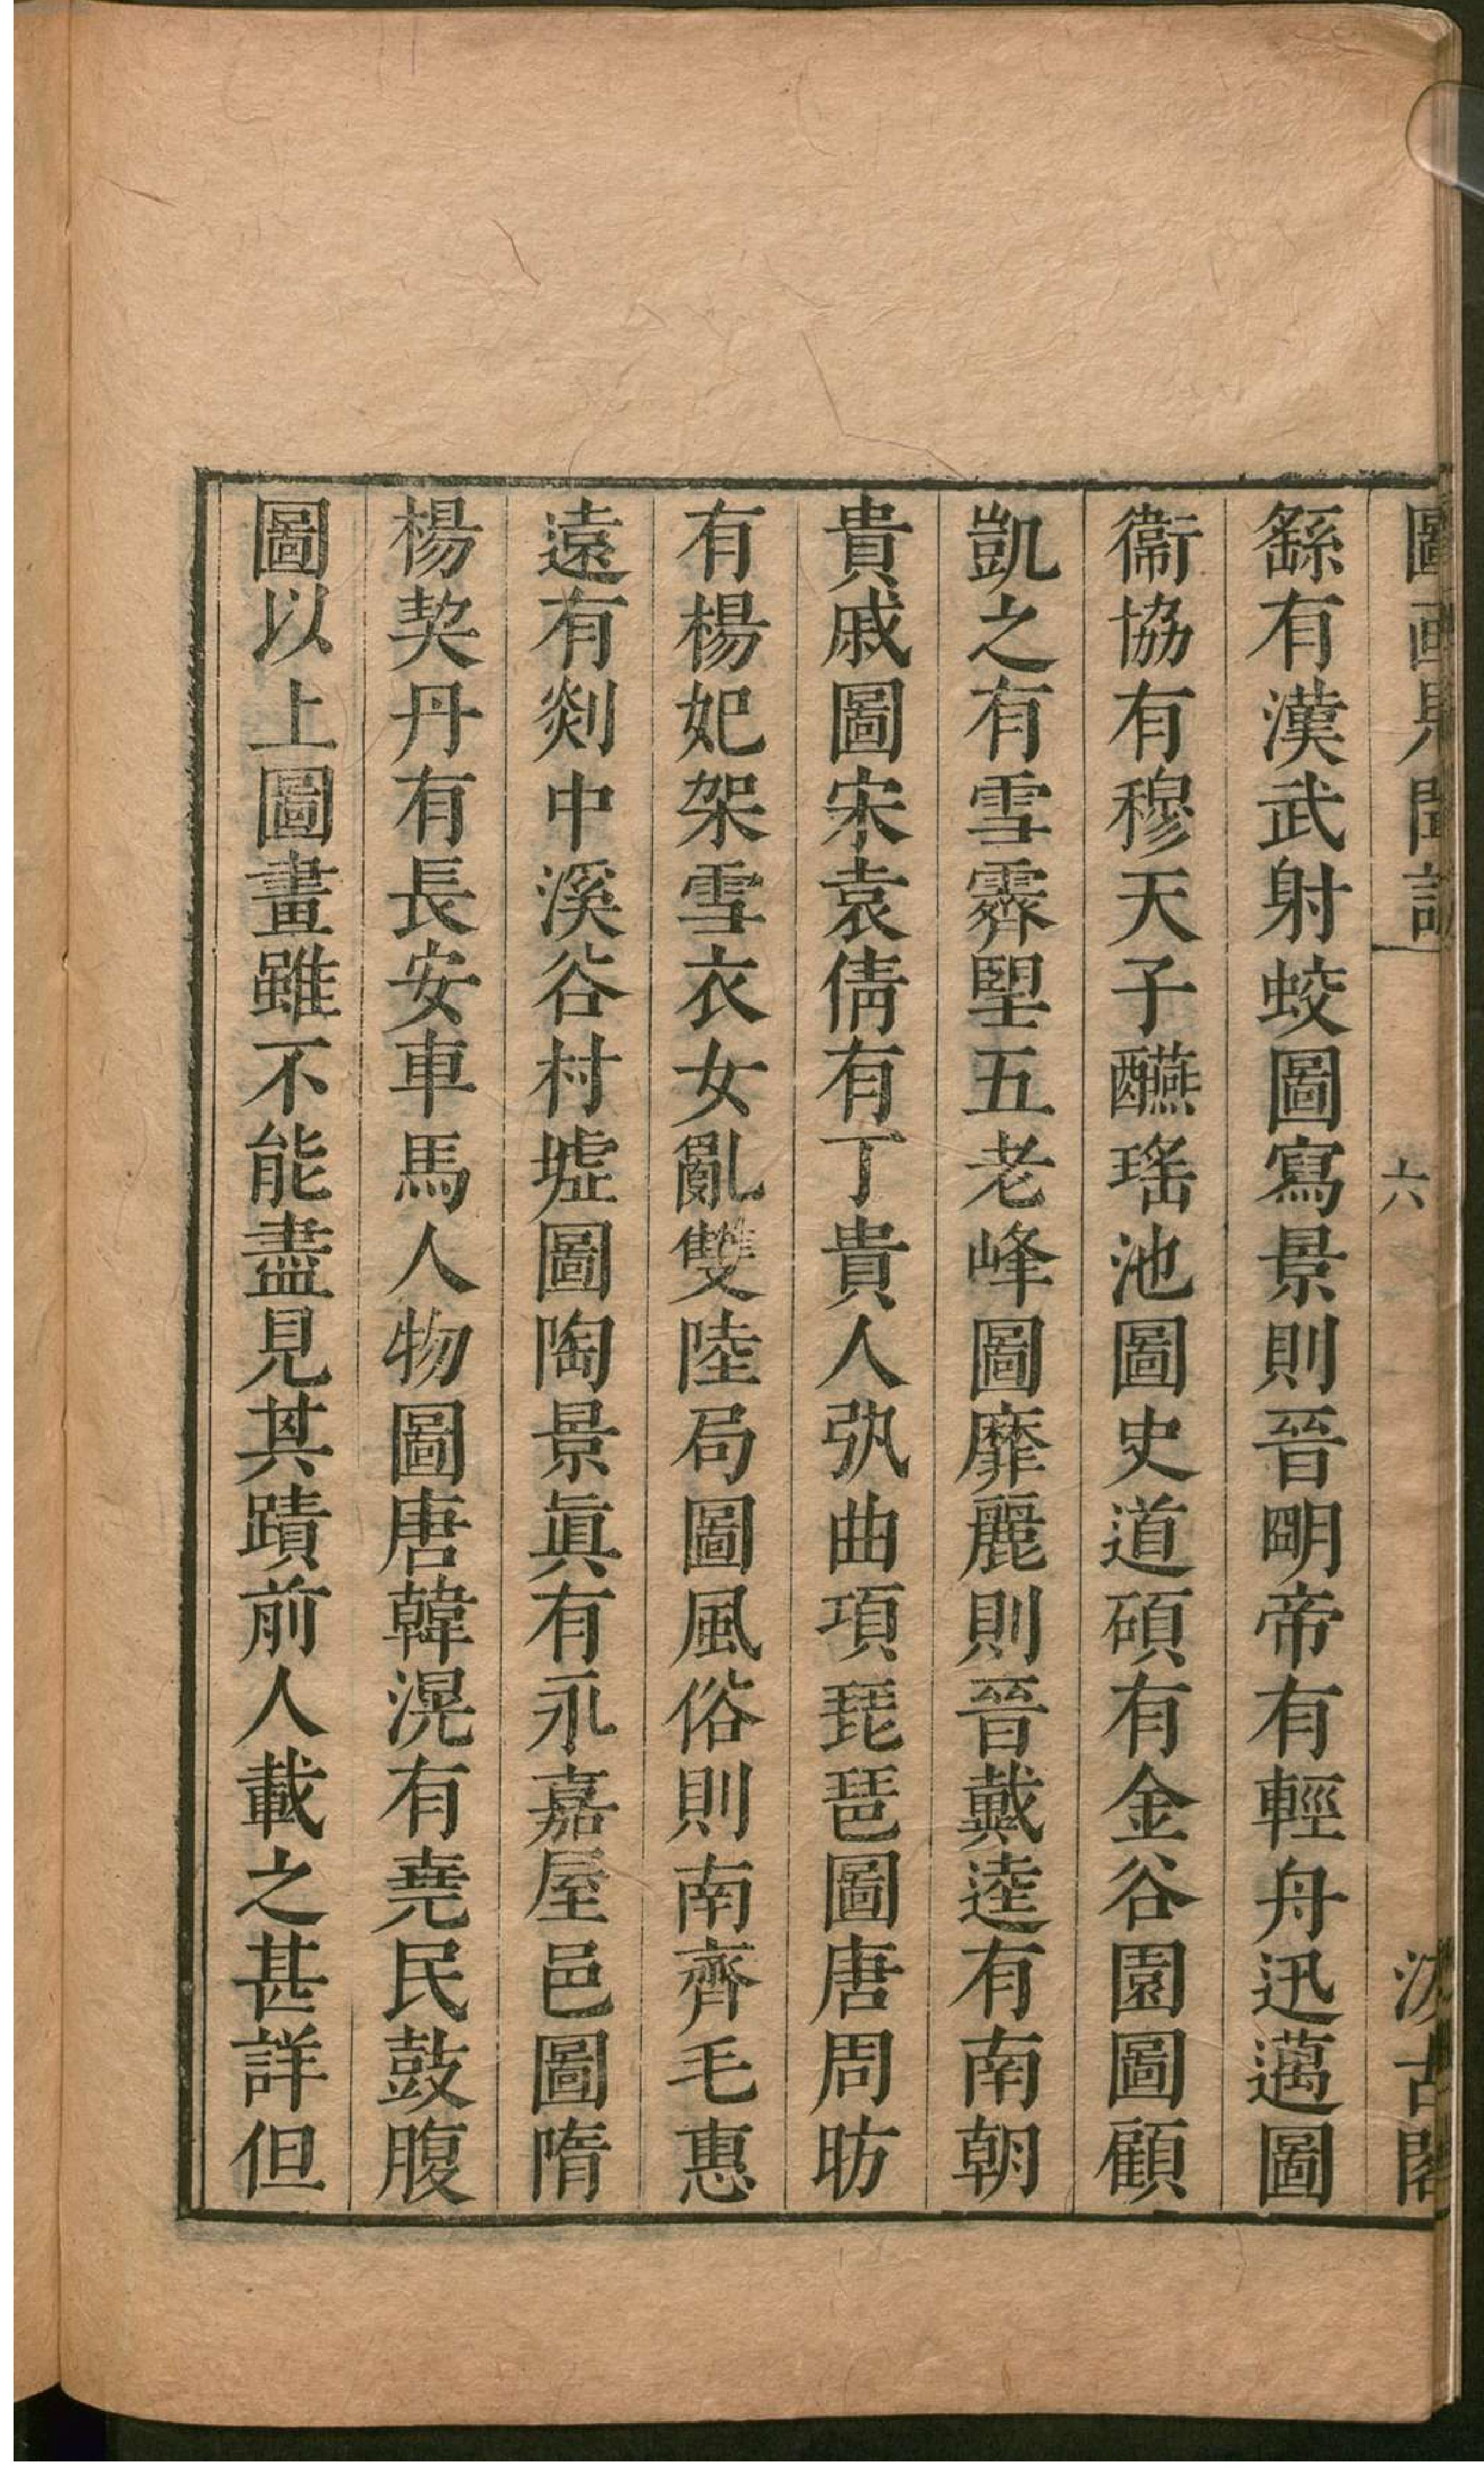 圖畫見聞誌
六
汲古閣
繇有漢武射蛟圖寫景則晉朙帝有輕舟迅邁圖
衞協有穆天子醼瑤池圖史道碩有金谷園圖顧
凱之有雪霽望五老峰圖靡麗則晉戴逵有南朝
貴戚圖宋袁倩有丁貴人弹曲項琵琶圖唐周昉
有楊妃架雪衣女亂雙陸局圖風俗則南齊毛惠
遠有剡中溪谷村墟圖陶景眞有永嘉屋邑圖隋
楊契丹有長安車馬人物圖唐韓滉有堯民鼓腹
圖以上圖畫雖不能盡見其蹟前人載之甚詳但